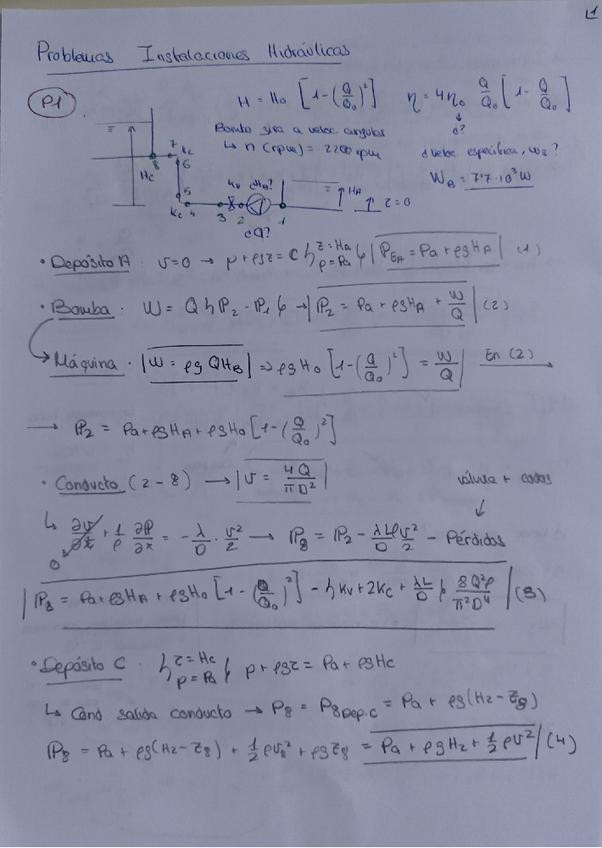 L1
Problemas Instalaciones Hidráulicas
P1
H = H₀ [1-(Q/Q₀)²] η = 4η₀ Q/Q₀ [1 - Q/Q₀]
¿?
Bomba gira a veloc angular
↳ n (rpm) = 2200 rpm
¿veloc específica, ωs?
W_B = 7'7·10³W
z Hc 8 7 Kc 6 5 Kc 4 3 Kv 2 ¿H_B? 1 H_A z=0
¿Q?
• Depósito A: v=0 → p+ρgz = C {z=H_A p=Pa} |P_{GA} = Pa+ρgH_A| (1)
• Bomba: W = Q {P₂ - P₁} → |P₂ = Pa + ρgH_A + W/Q| (2)
Máquina · |W = ρgQH_B| ⇒ ρgH₀ [1-(Q/Q₀)²] = W/Q| En (2)
→ P₂ = Pa+ρgH_A+ρgH₀[1-(Q/Q₀)²]
• Conducto (2-8) → |v = 4Q/πD²| válvula + codos
↳ ∂v/∂t + 1/ρ ∂P/∂x = -λ/D · v²/2 → P₈ = P₂ - λLρv²/D 2 - Pérdidas
0
|P₈ = Pa+ρgH_A+ρgH₀[1-(Q/Q₀)²] - {Kv+2Kc+λL/D} 8Q²ρ/π²D⁴| (3)
• Depósito C: {z=Hc p=Pa} p+ρgz = Pa+ρgHc
↳ Cond salida conducto → P₈ = P₈Dep.C = Pa + ρg(H₂-z₈)
P₈ = Pa + ρg(H₂-z₈) + ½ρv₈² + ρgz₈ = Pa+ρgH₂+½ρv²| (4)